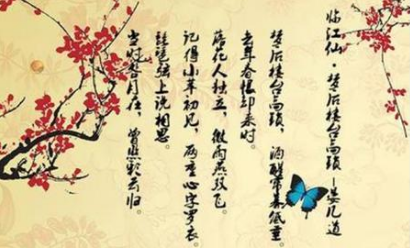 临江仙·梦后楼台高锁—晏几道
梦后楼台高锁，酒醒帘幕低垂
去年春恨却来时。
落花人独立，微雨燕双飞。
记得小苹初见，两重心字罗衣。
琵琶弦上说相思。
当时明月在，曾照彩云归。